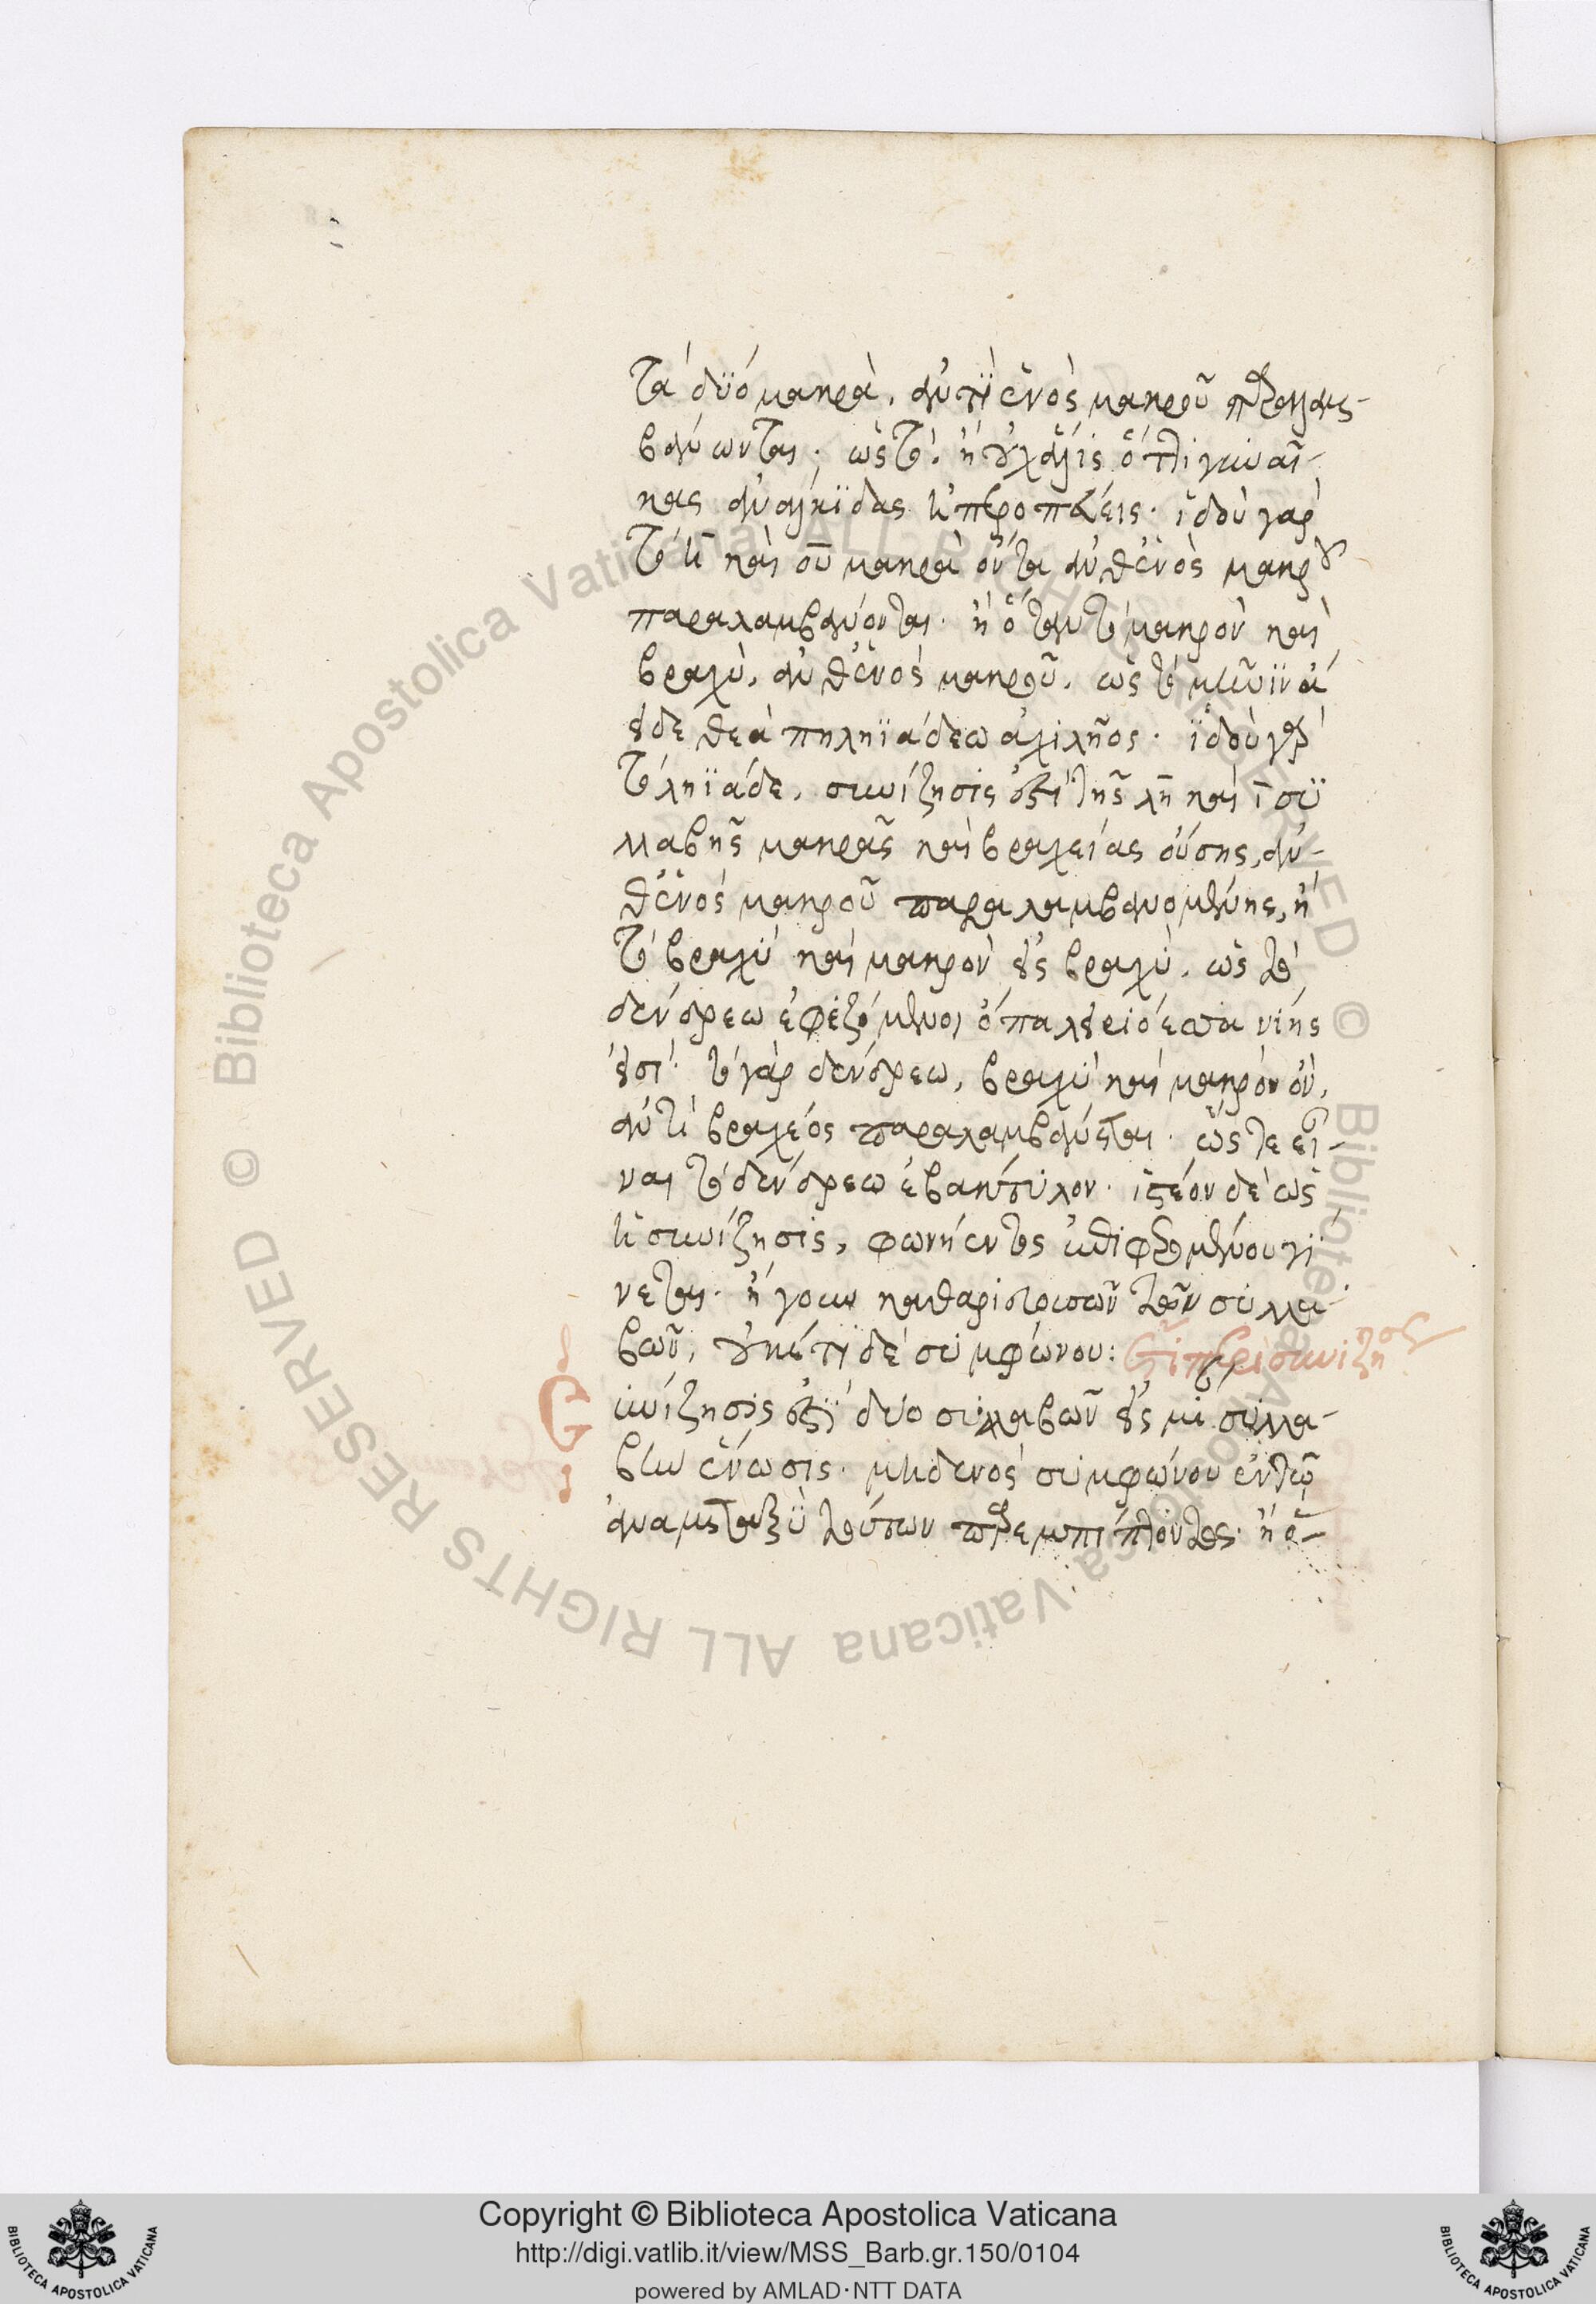 τὰ δύο μακρὰ, ἀντὶ ἑνὸς μακροῦ παραλαμ-
βάνωνται· ὡς τὸ, ἢ οὐχ ἅλις ὅττι γυναῖ-
κας ἀνάλκιδας ἠπεροπεύεις· ἰδοὺ γὰρ
τὸ η καὶ ου μακρὰ ὄντα ἀνθ' ἑνὸς μακροῦ
παραλαμβάνονται· ἢ ὅταν τὸ μακρὸν καὶ
βραχὺ, ἀνθ' ἑνὸς μακροῦ, ὡς τὸ μῆνιν ἄ
ειδε θεὰ πηληϊάδεω ἀχιλῆος· ἰδοὺ γὰρ
τὸ ληϊάδε, συνίζησις ἐστὶ τῆς λη καὶ ι συ
λλαβῆς μακρᾶς καὶ βραχείας οὔσης, ἀν-
θ' ἑνὸς μακροῦ παραλαμβανομένης, ἢ
τὸ βραχὺ καὶ μακρὸν εἰς βραχὺ, ὡς τὸ
δενδρέω ἐφεζόμενοι ὄπα λειριόεσσαν ἱεῖς
εισι· τὸ γὰρ δενδρέω, βραχὺ καὶ μακρὸν ὂν,
ἀντὶ βραχέος παραλαμβάνεται· ὥστε εἶ-
ναι τὸ δενδρέω ἐβ δάκτυλον· ἰστέον δὲ ὡς
ἡ συνίζησις, φωνήεντος ἐπιφερομένου γί
νεται· ἤγουν καθαρευουσῶν τῶν συλλα
βῶν, οὐκέτι δὲ συμφώνου: ἔτι περὶ συνιζήσεως
Συνίζησις ἐστὶ δύο συλλαβῶν εἰς μίαν συλλα-
βὴν ἕνωσις· μηδενὸς συμφώνου ἐν τῷ
ἀναμεταξὺ τούτων παρεμπίπτοντος· ἢ ὅ-
Copyright © Biblioteca Apostolica Vaticana
http://digi.vatlib.it/view/MSS_Barb.gr.150/0104
powered by AMLAD·NTT DATA